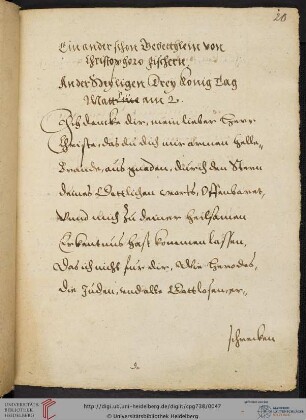 20
Ein ander schon Gebettlein von
Christophoro Fischern
An der Heyligen Drey König Tag
Matthæi am 2.
Ich dancke dir, mein lieber Herr
Christe, das du dich mir armen
aus gnaden, durch den Stern
deines Göttlichen worts, Offenbaret,
Unnd mich zu deiner heilsamen
Erkentnus hast kommen lassen,
Das ich nicht für dir, Wie Herodes,
die Juden, und alle Gottlosen, er-
schrecken
UNIVERSITÄTS-
BIBLIOTHEK
HEIDELBERG
http://digi.ub.uni-heidelberg.de/diglit/cpg738/0047
© Universitätsbibliothek Heidelberg